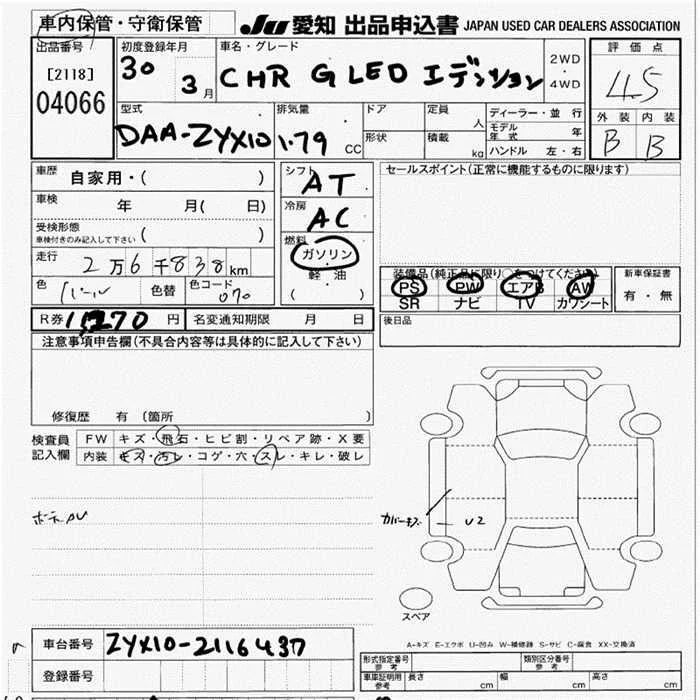 車内保管・守衛保管
JU 愛知 出品申込書 JAPAN USED CAR DEALERS ASSOCIATION
出品番号
[2118]
04066
初度登録年月
30 3 月
車名・グレード
CHR G LED エディション
2WD
・
4WD
評価点
4.5
外装 内装
B B
型式
DAA-ZYX10
排気量
1.79 CC
ドア
形状
定員 人
積載 kg
ディーラー・並行
モデル年式 年
ハンドル 左・右
車歴 自家用・( )
車検 年 月( 日)
受検形態
車検付きのみ記入して下さい ( )
走行 2万6千838km
色 パール 色替 色コード 070
シフト
AT
冷房
AC
燃料
ガソリン
・
軽油
( )
セールスポイント(正常に機能するものに限ります)
装備品(純正品に限り○をつけてください)
PS PW エアB AW
SR ナビ TV カワシート
新車保証書
有・無
R券 円 名変通知期限 月 日
後日品
注意事項申告欄(不具合内容等は具体的に記入して下さい)
修復歴 有 (箇所 )
検査員
記入欄
FW キズ・飛石・ヒビ割・リペア跡・X要
内装 キズ・汚レ・コゲ・穴・スレ・キレ・破レ
カバーキズ
U2
スペア
A-キズ E-エクボ U-凹み W-補修跡 S-サビ C-腐食 XX-交換済
車台番号 ZYX10-2116437
登録番号
形式指定番号
参考
類別区分番号
参考
車庫証明用
参考
長さ cm 幅 cm 高さ cm